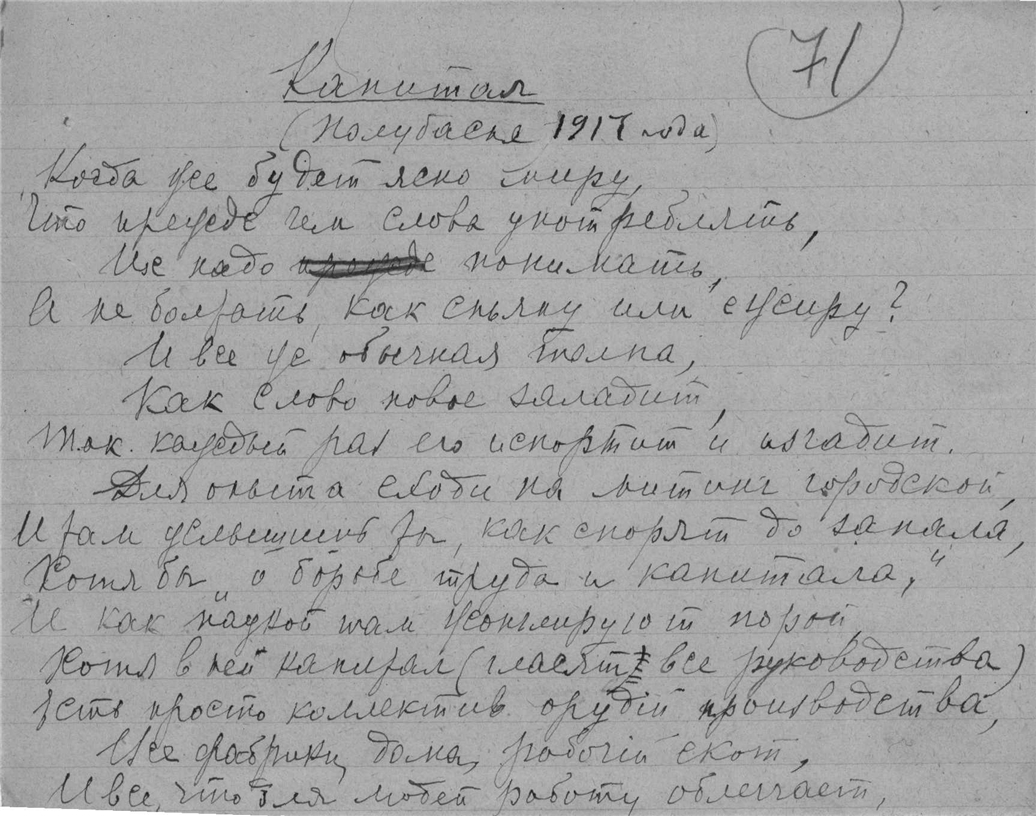 71
Капитал
(Полубасня 1917 года)
Когда уже будет ясно миру,
Что прежде чем слова употреблять,
Их надо понимать,
А не болтать, как спьяну или с жиру?
И все же обычная толпа,
Как слово новое заладит,
Так каждый раз его испортит и изгадит.
Для опыта сходи на митинг городской,
И там услышишь ты, как спорят до запала,
Хотя бы "о борьбе труда и капитала,"
И как наукой там жонглируют порой,
Хотя в ней капитал (гласят все руководства)
Есть просто коллектив орудий производства,
Все фабрики, дома, рабочий скот,
И все, что для людей работу облегчает,